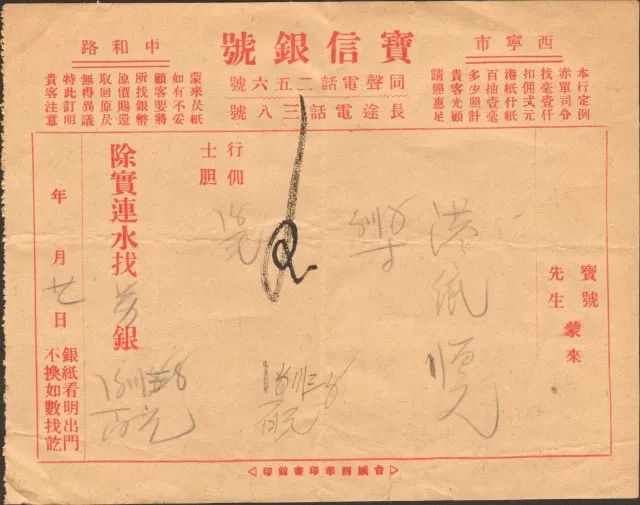 西寧市
寶信銀號
中和路
同聲電話二五六號
長途電話三八號
本行定例
找毫壹仟
扣佣弍元
港紙什紙
百抽壹毫
多少照計
貴客光顧
請照惠足
如有不妥
顧客要將
所找銀幣
原價賜還
無得異議
特此訂明
貴客注意
寶號
先生
蒙來
港紙
行佣
士胆
除實連水找
銀
年 月 廿日
銀紙看明出門
不換如數找訖
台城西華印書舘印